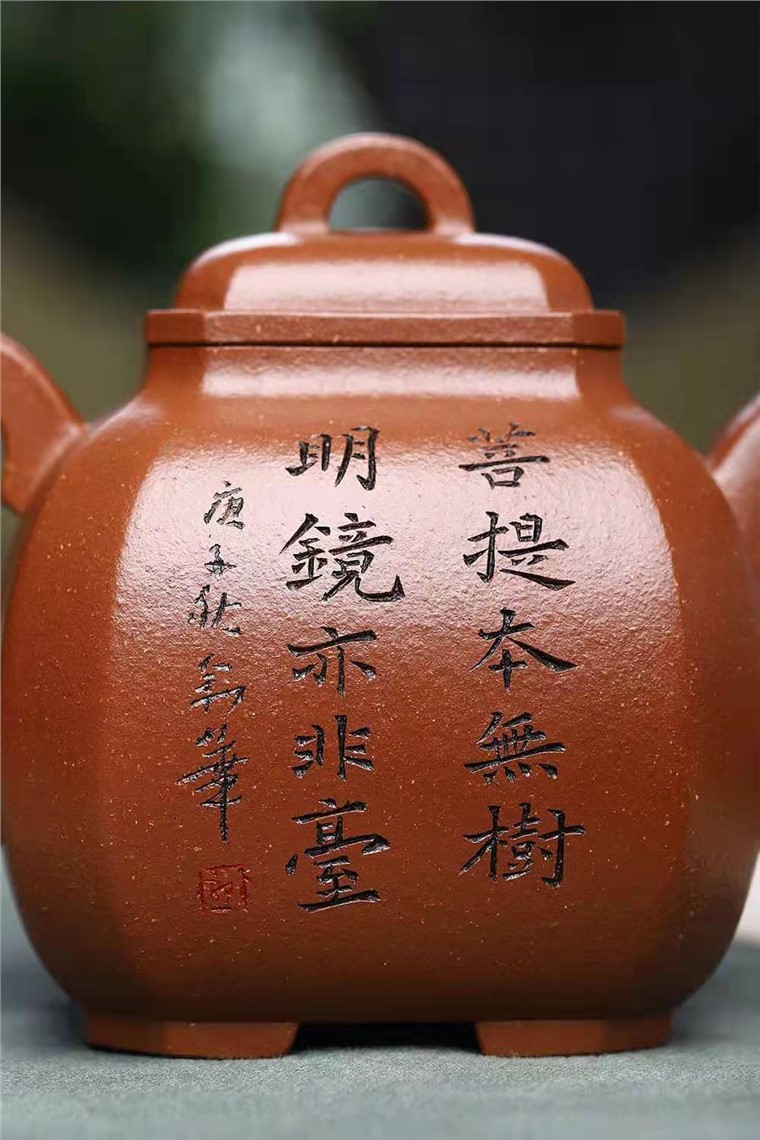 菩提本無樹
明鏡亦非臺
庚子秋莉華